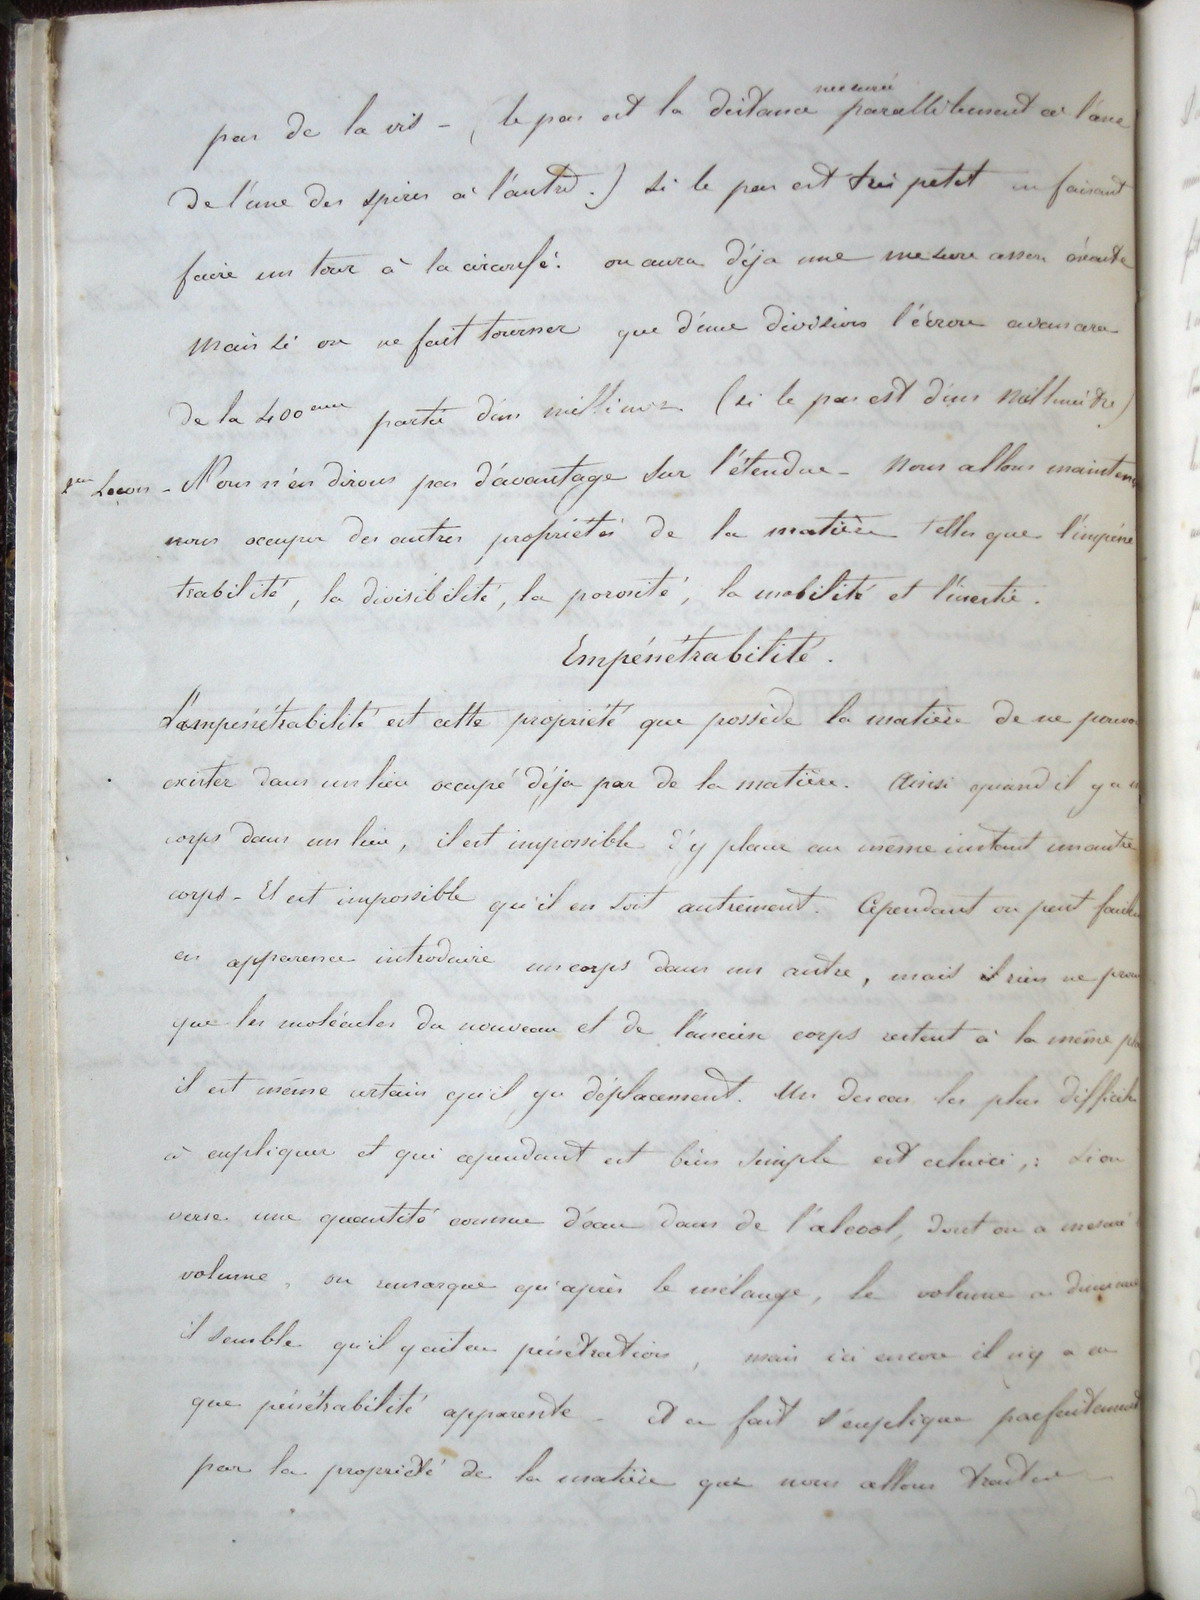 mesuré
pas de la vis – (le pas est la distance parallèlement à l'axe
de l'une des spires à l'autre.) si le pas est très petit en faisant
faire un tour à la circonfé. on aura déja une mesure assez exacte
mais si on ne fait tourner que d'une division l'écrou avancera
de la 400eme partie d'un millim. (si le pas est d'un millimètre)
2me Leçon – Nous n'en dirons pas d'avantage sur l'étendue – Nous allons mainten
nous occuper des autres propriétés de la matière telles que l'impéné
trabilité, la divisibilité, la porosité, la mobilité et l'inertie.
Impénétrabilité.
L'impénétrabilité est cette propriété que possède la matière de ne pouvo
exister dans un lieu occupé déja par de la matière. Ainsi quand il y a u
corps dans un lieu, il est impossible d'y placer au même instant un autre
corps – Il est impossible qu'il en soit autrement. Cependant on peut
en apparence introduire un corps dans un autre, mais rien ne prou
que les molécules du nouveau et de l'ancien corps restent à la même pla
il est même certain qu'il y a déplacement. Un des cas les plus difficiles
à expliquer et qui cependant est bien simple est celui ci,: si on
verse une quantité connue d'eau dans de l'alcool, dont on a mesuré
volume, on remarque qu'après le mélange, le volume a
il semble qu'il y ait eu pénétration, mais ici encore il n'y a eu
que pénétrabilité apparente – et ce fait s'explique parfaitement
par la propriété de la matière que nous allons traiter